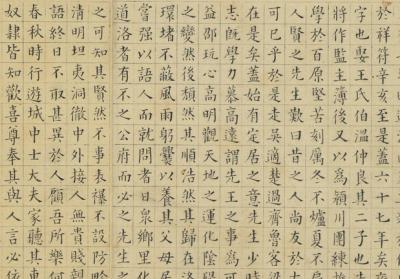 於祥符辛亥至是蓋六十七年矣
字也娶王氏伯溫仲良其二子
將作監主簿後又以為潁川團練
學於百原堅苦刻厲冬不爐夏不扇
人賢之先生歎曰昔之人尚友於
可已乎於是走吳適楚過齊魯客梁
在是矣蓋始有定居之意先生少
志既學力慕高遠謂先王之事為可
益邵玩心高明觀天地之運化陰陽
之變然後頹然其順浩然其歸在洛
環堵不蔽風雨躬爨以養其父母
當強以語人而就問者日眾鄉里化
道洛者有不之公府而必之先生之
之可知其賢然不事表襮不設防畛
清明坦夷洞徹中外接人無貴賤
語終日不取甚異於人顧吾所樂何
春秋時行遊城中士大夫家聽其車
奴隸皆知歡喜尊奉其與人言必依